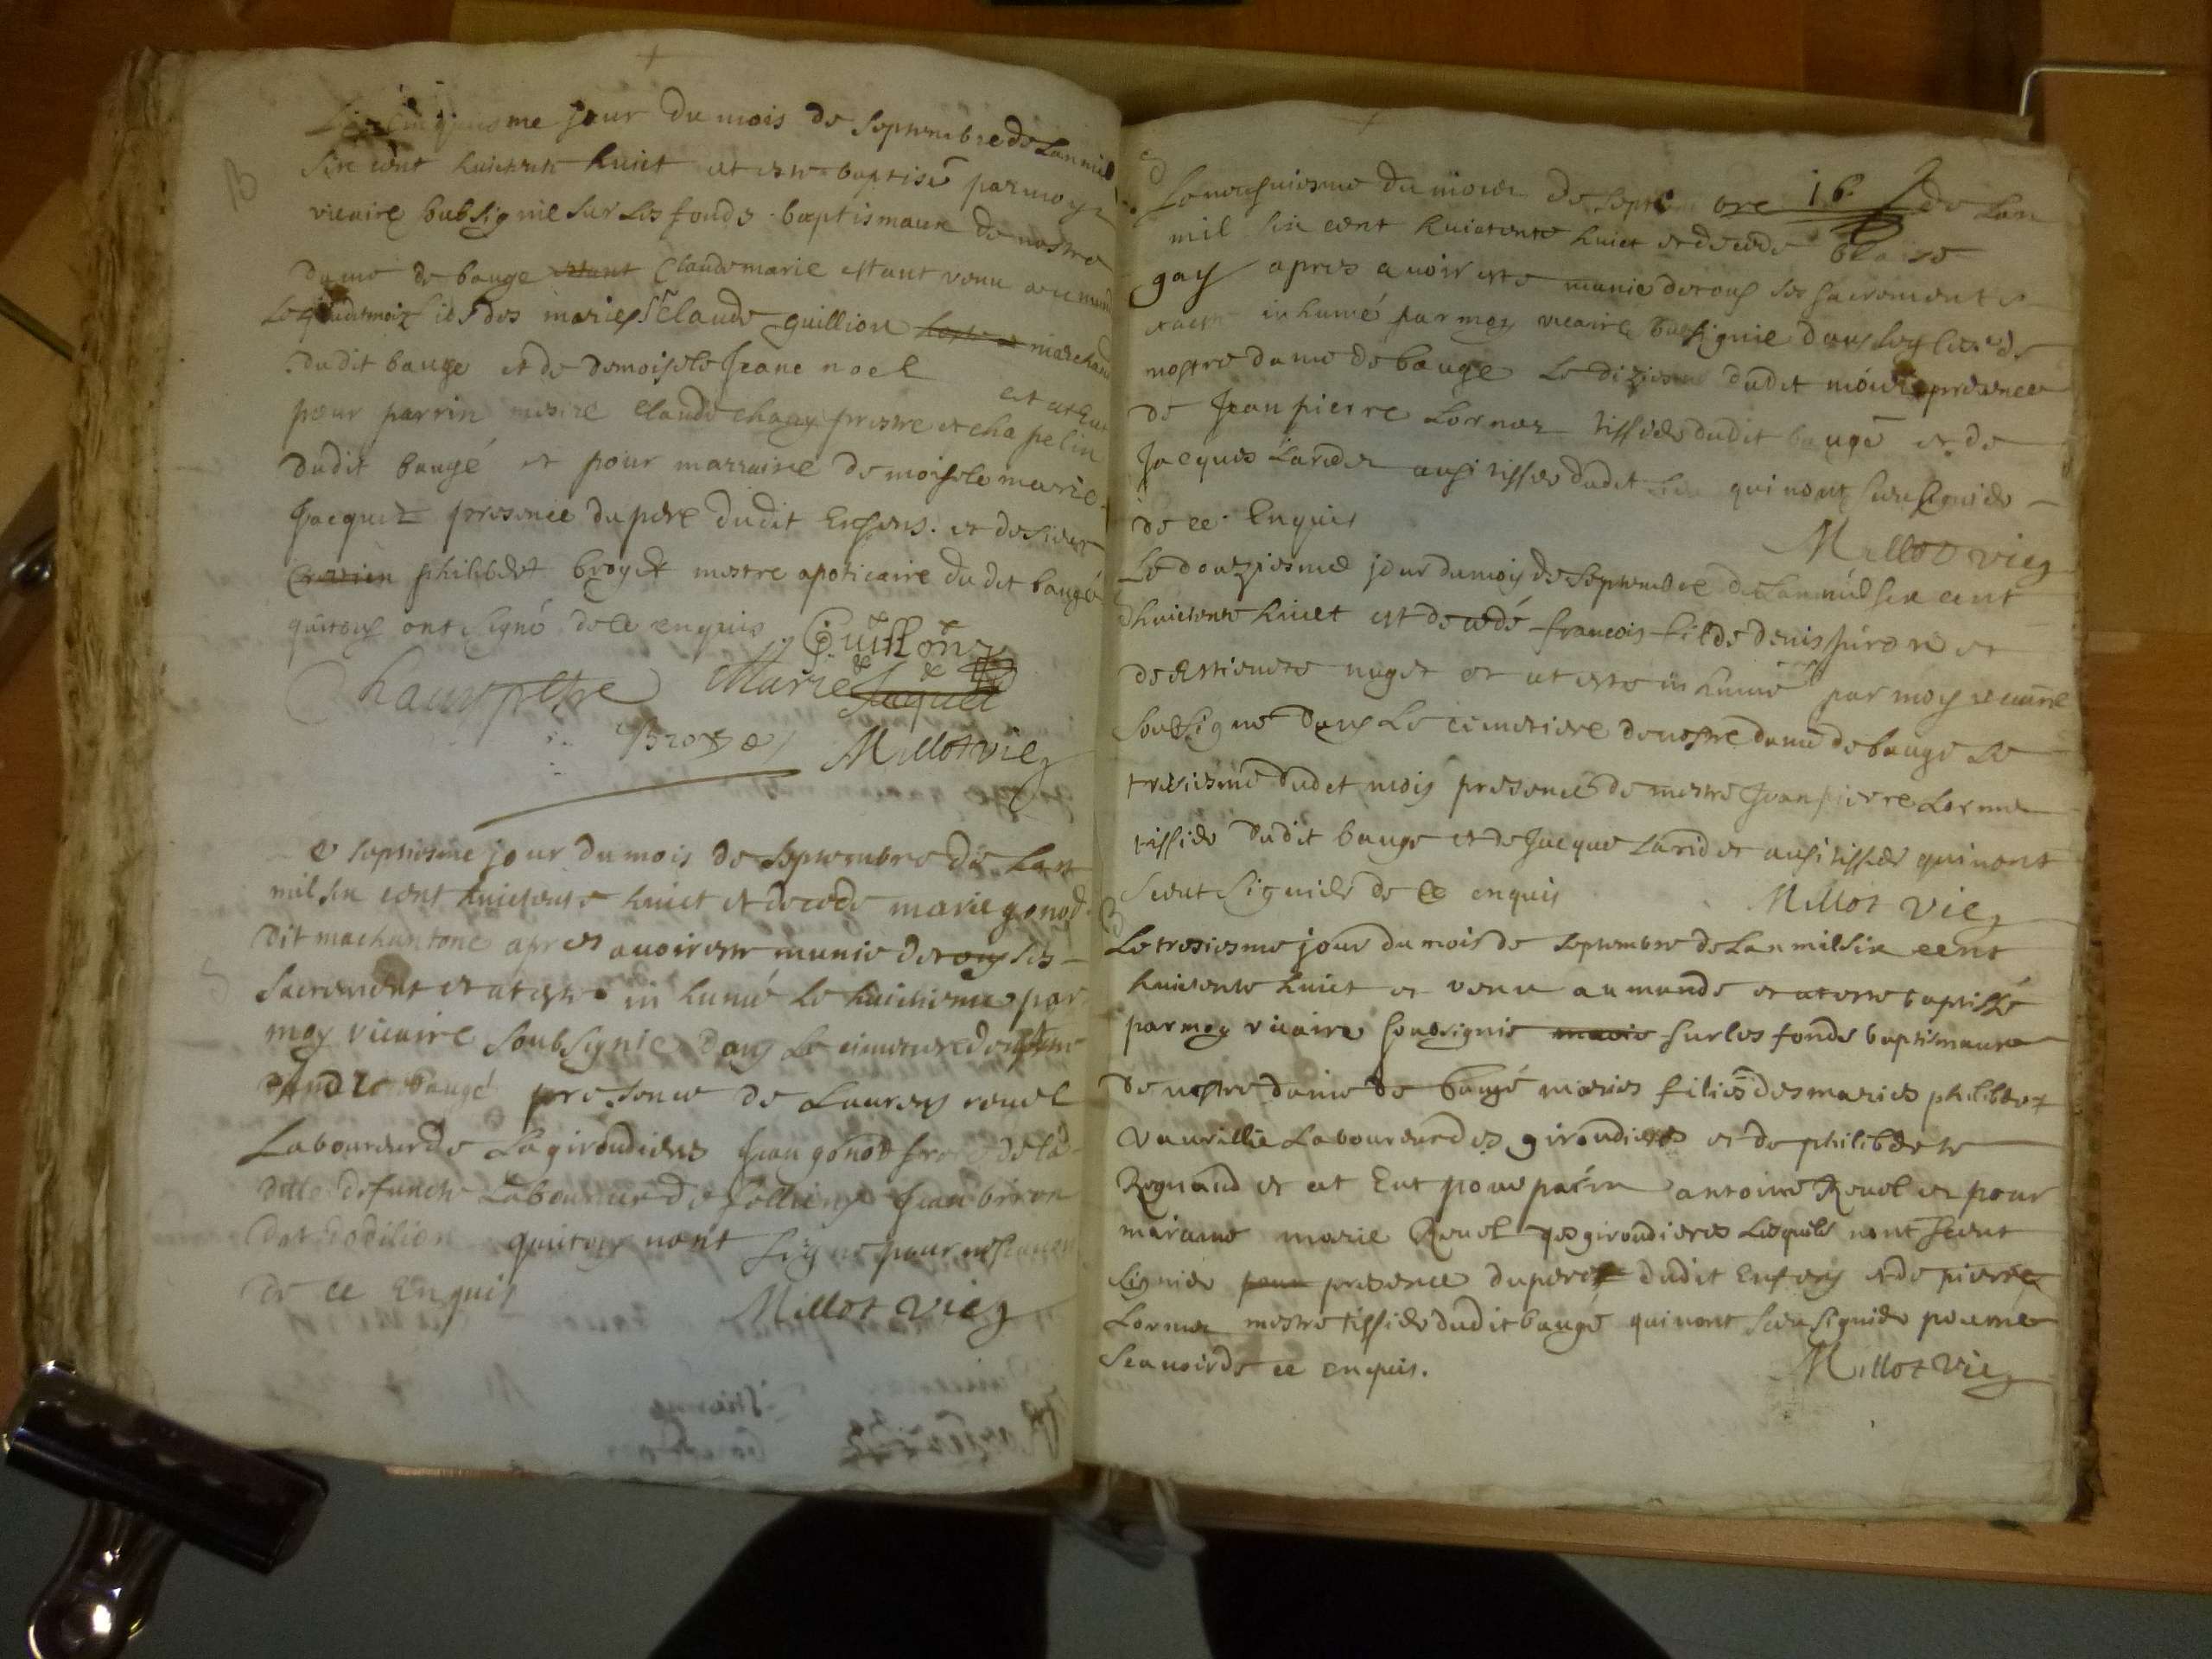 B
Le cinquiesme jour du mois de septembre de Lan mil
sixe cent huictente huict at este baptisé par moy
vicaire soubsignie sur les fonds baptismaux de nostre
dame de bauge estant Claude marie estant venu au mund
des maries Sr Claude guillion marchand
dudit bauge et de demoiselle Jeane noel et at eut
pour parrin mesire Claude chauy prestre et chapelin
dudit baugé et pour marraine demoiselle marie
Jacquet presence du pere dudit Enfens. et de sieur
philibert broyet mestre apoticaire du dit baugé
qui tous ont signé de ce enquis
Guillon
Chauy ptre Marie Jacquet
Broyer Millot vic
e septiesme jour du mois de septembre de Lan
mil six cent huictente huict et decede marie gonod
dit machantone apres avoir este munie de tous ses
sacrement et at este in humé le huictiesme par
moy vicaire soubsignie dans le cimetiere de nostre
dame de baugé presence de Laurens revel
Laboureur de Lagirondiere Jean gonod frere de la
ditte defuncte Laboureur de Jean
qui tous nont signe pour ne scavoir
de ce Enquis
Millot vic
Le neufviesme du mois de septembre 16 de Lan
mil six cent huictente huict et decede
gay apres avoir este munie de tous ses sacrements
et at este inhumé par moy vicaire soubsignie dans leglise de
nostre dame de bauge Le diziesme dudit mois presence
de Jean pierre Lornoz tissier dudit baugé et de
Jacques Laridez ausi tissier dudit qui nont sceu signier
de ce Enquis
Millot vic
Le douziesme jour du moy de septembre de Lan mil six cent
huictente huict est decedé francois fil de denis et
de Estienete nuget et at este in humé par moy vicaire
soubsigné dans Le cimetiere de nostre dame de bauge Le
tresiesme dudet mois presence de mestre Jean pierre Lornoz
tissier dudit bauge et de Jacque Larider ausi tissier qui nont
sceut signier de ce enquis
Millot vic
B
Le tresiesme jour du mois de septembre de Lan mil six cent
huictente huict et venu au munde et at este baptissé
par moy vicaire soubsignie marie sur les fonds baptismaux
de nostre dame de baugé maries filies des maries philibert
vaurillie Laboureur des girondieres et de philiberte
Regnaud et at Eut pour parin antoine Revel et pour
maraine marie Revel des girondieres Lesquels nont sceut
signier pour presence du pere dudit Enfens et de pierre
Lornoz mestre tissier dudit baugé qui nont sceu signier pour ne
scavoir de ce enquis.
Millot vic